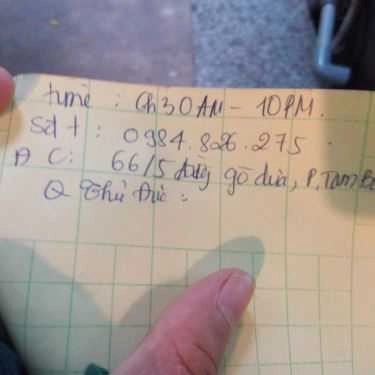 time : 6h30AM - 10PM.
Sđt : 0984.826.275
Đ C: 66/5 đường gò dưa, P. Tam B
Q Thủ Đức .